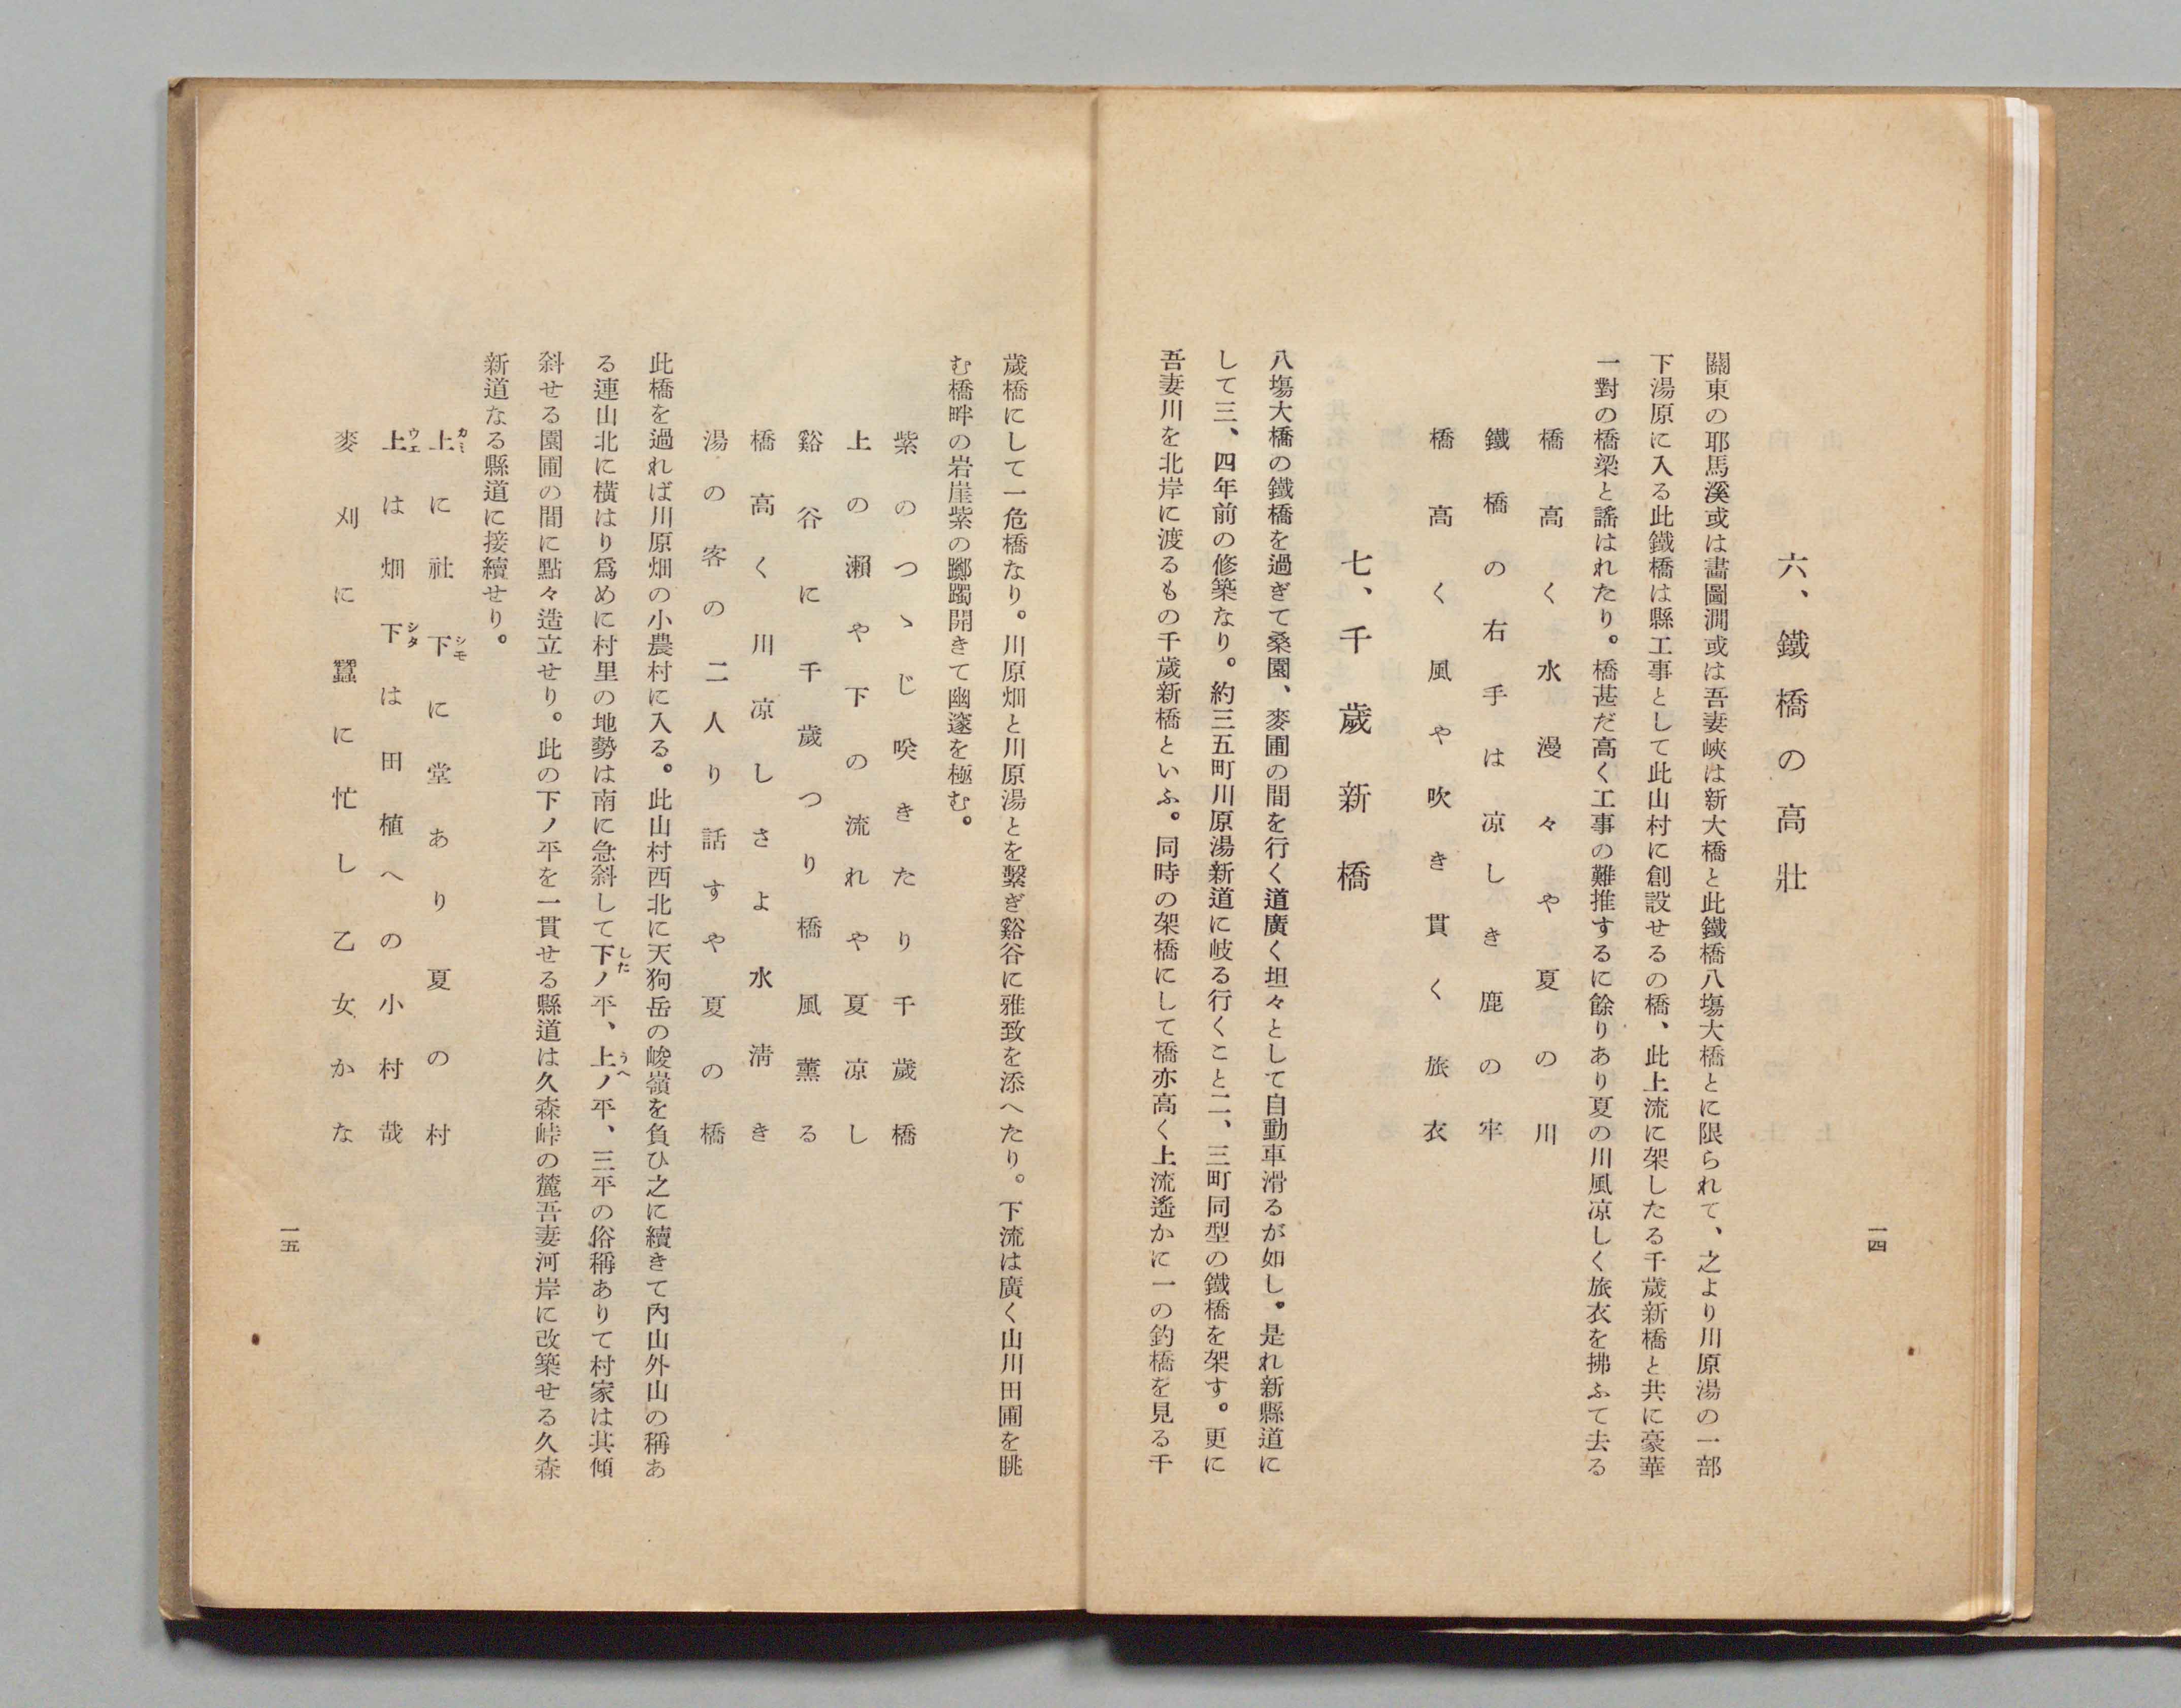 一四
六、鐵橋の高壯
關東の耶馬溪或は畵圖澗或は吾妻峽は新大橋と此鐵橋八塲大橋とに限られて、之より川原湯の一部
下湯原に入る此鐵橋は縣工事として此山村に創設せるの橋、此上流に架したる千歲新橋と共に豪華
一對の橋梁と謠はれたり。橋甚だ高く工事の難推するに餘りあり夏の川風凉しく旅衣を拂ふて去る
橋高く水漫々や夏の川
鐵橋の右手は凉しき鹿の牢
橋高く風や吹き貫く旅衣
七、千歲新橋
八塲大橋の鐵橋を過ぎて桑園、麥圃の間を行く道廣く坦々として自動車滑るが如し。是れ新縣道に
して三、四年前の修築なり。約三五町川原湯新道に岐る行くこと二、三町同型の鐵橋を架す。更に
吾妻川を北岸に渡るもの千歲新橋といふ。同時の架橋にして橋亦高く上流遙かに一の釣橋を見る千
歲橋にして一危橋なり。川原畑と川原湯とを繫ぎ谿谷に雅致を添へたり。下流は廣く山川田圃を眺
む橋畔の岩崖紫の躑躅開きて幽邃を極む。
紫のつゝじ咲きたり千歲橋
上の瀨や下の流れや夏凉し
谿谷に千歲つり橋風薰る
橋高く川凉しさよ水淸き
湯の客の二人り話すや夏の橋
此橋を過れば川原畑の小農村に入る。此山村西北に天狗岳の峻嶺を負ひ之に續きて內山外山の稱あ
る連山北に橫はり爲めに村里の地勢は南に急斜して下ノ平、上ノ平、三平の俗稱ありて村家は其傾
斜せる園圃の間に點々造立せり。此の下ノ平を一貫せる縣道は久森峠の麓吾妻河岸に改築せる久森
新道なる縣道に接續せり。
上に社下に堂あり夏の村
上は畑下は田植への小村哉
麥刈に蠶に忙し乙女かな
一五